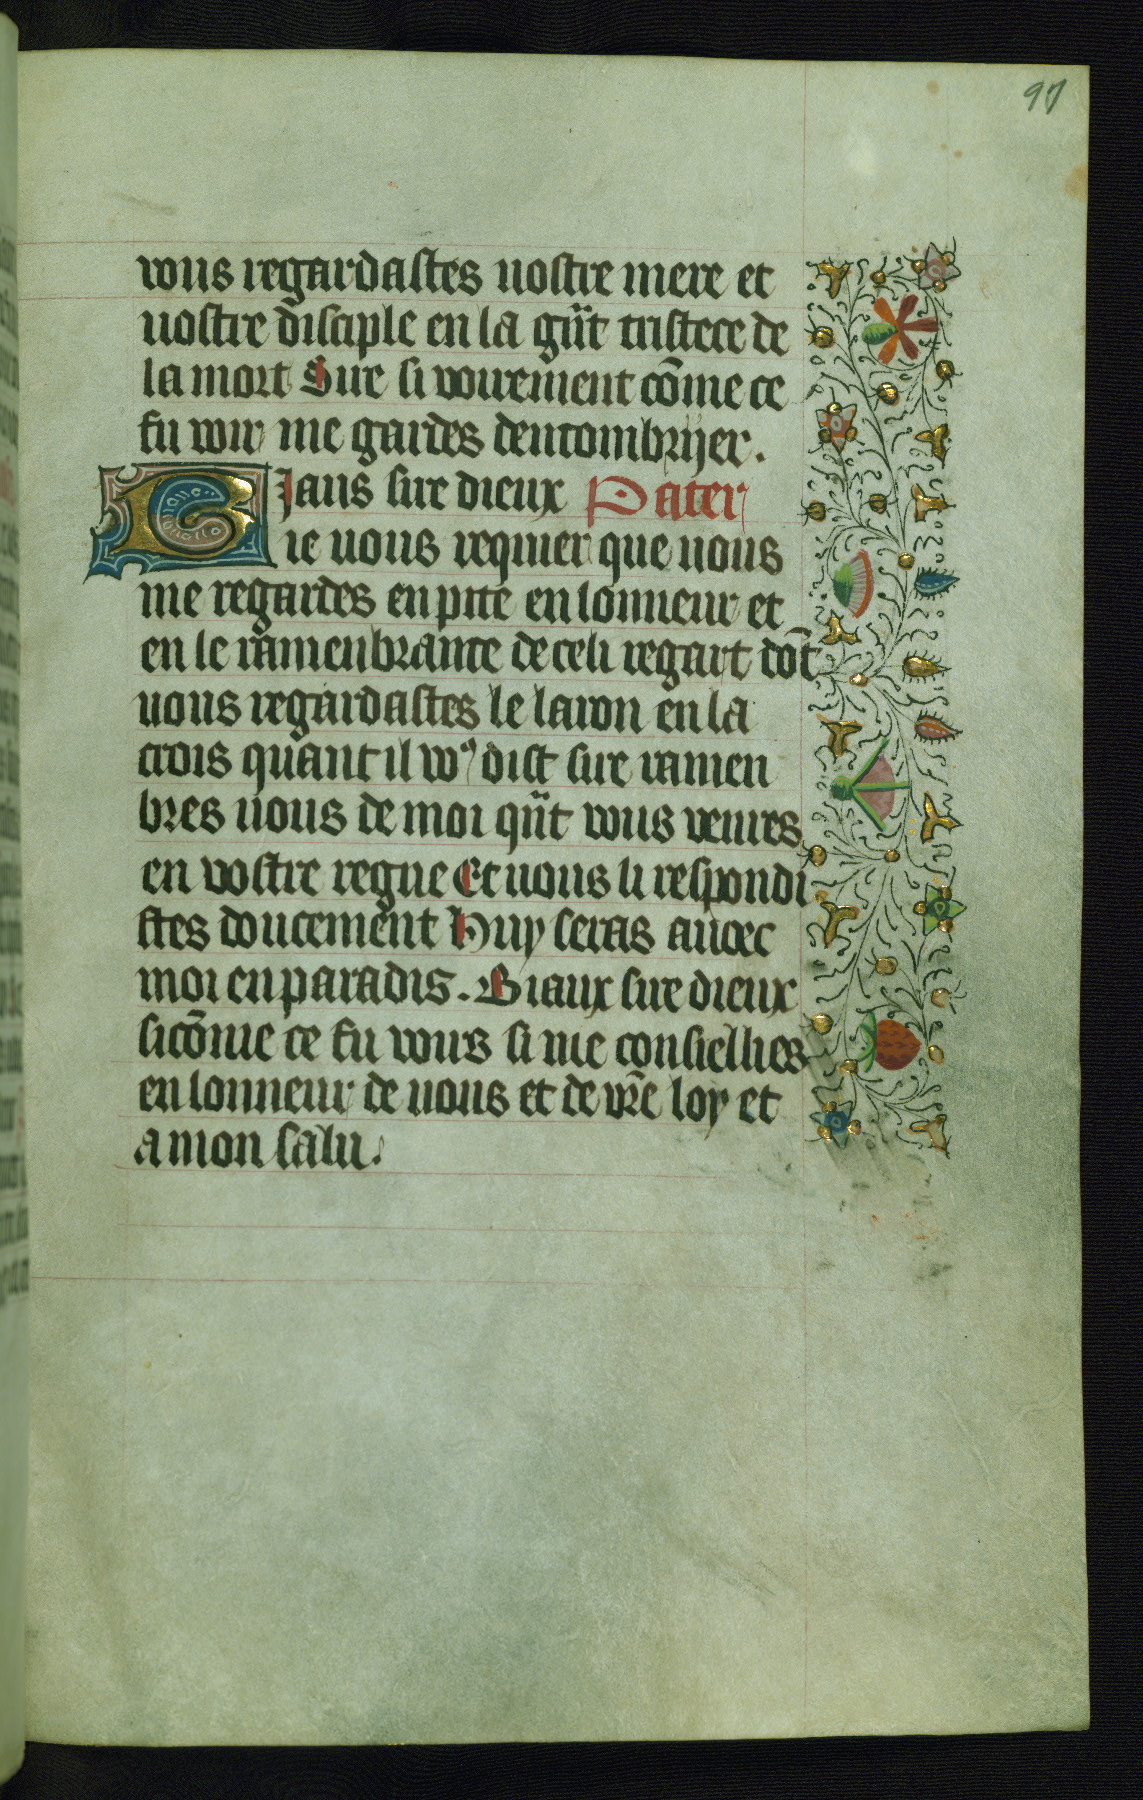 97
vous regardastes uostre mere et
uostre disciple en la gñt tristece de
la mort Sire si vouremẽnt cõme ce
fu voir me gardes dencombrijer.
BJaus sire dieux Pater
ie uous requier que uous
me regardes en pite en lonneur et
en le ramenbrance de celi regart dõt
uous regardastes le laron en la
crois quant il voꝰ dist sire ramen
bres uous de moi qñt vous venres
en vostre regne Et uous li respondi
stes doucement Huy seras auoec
moi en paradis. Biaux sire dieux
si cõme ce fu vours si me consielhies
en lonneur de uous et de vr̃e loy et
a mon salu.